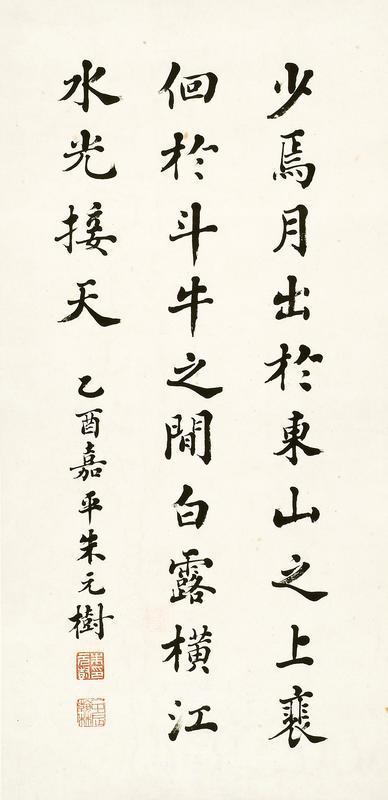 少焉月出於東山之上裵
佪於斗牛之間白露橫江
水光接天
乙酉嘉平朱元樹